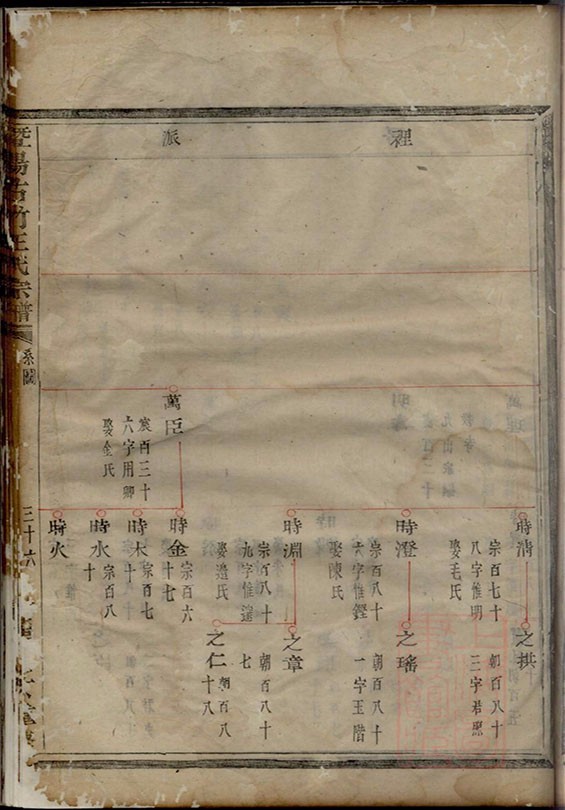 裡
派
時淸
宗百七十
八字惟明
娶毛氏
之拱
朝百八十
三字若愿
時澄
宗百八十
六字惟鏗
娶陳氏
之瑤
朝百八十
一字玉階
時淵
宗百八十
九字惟
娶邉氏
之章
朝百八十
七
之仁
朝百八
十八
萬臣
宸百三十
六字用卿
娶金氏
時金
宗百六
十七
時木
宗百七
十
時水
宗百八
十
時火
暨陽古竹王氏宗譜
系圖
三十六